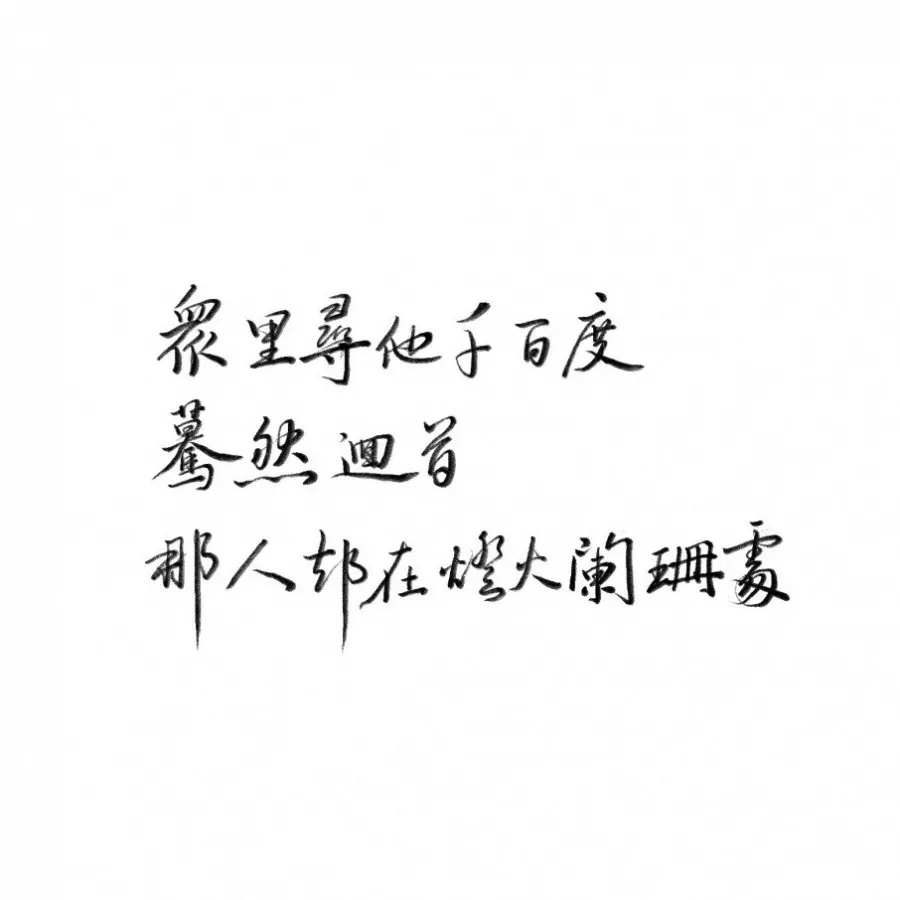 眾里尋他千百度
驀然迴首
那人却在燈火闌珊處